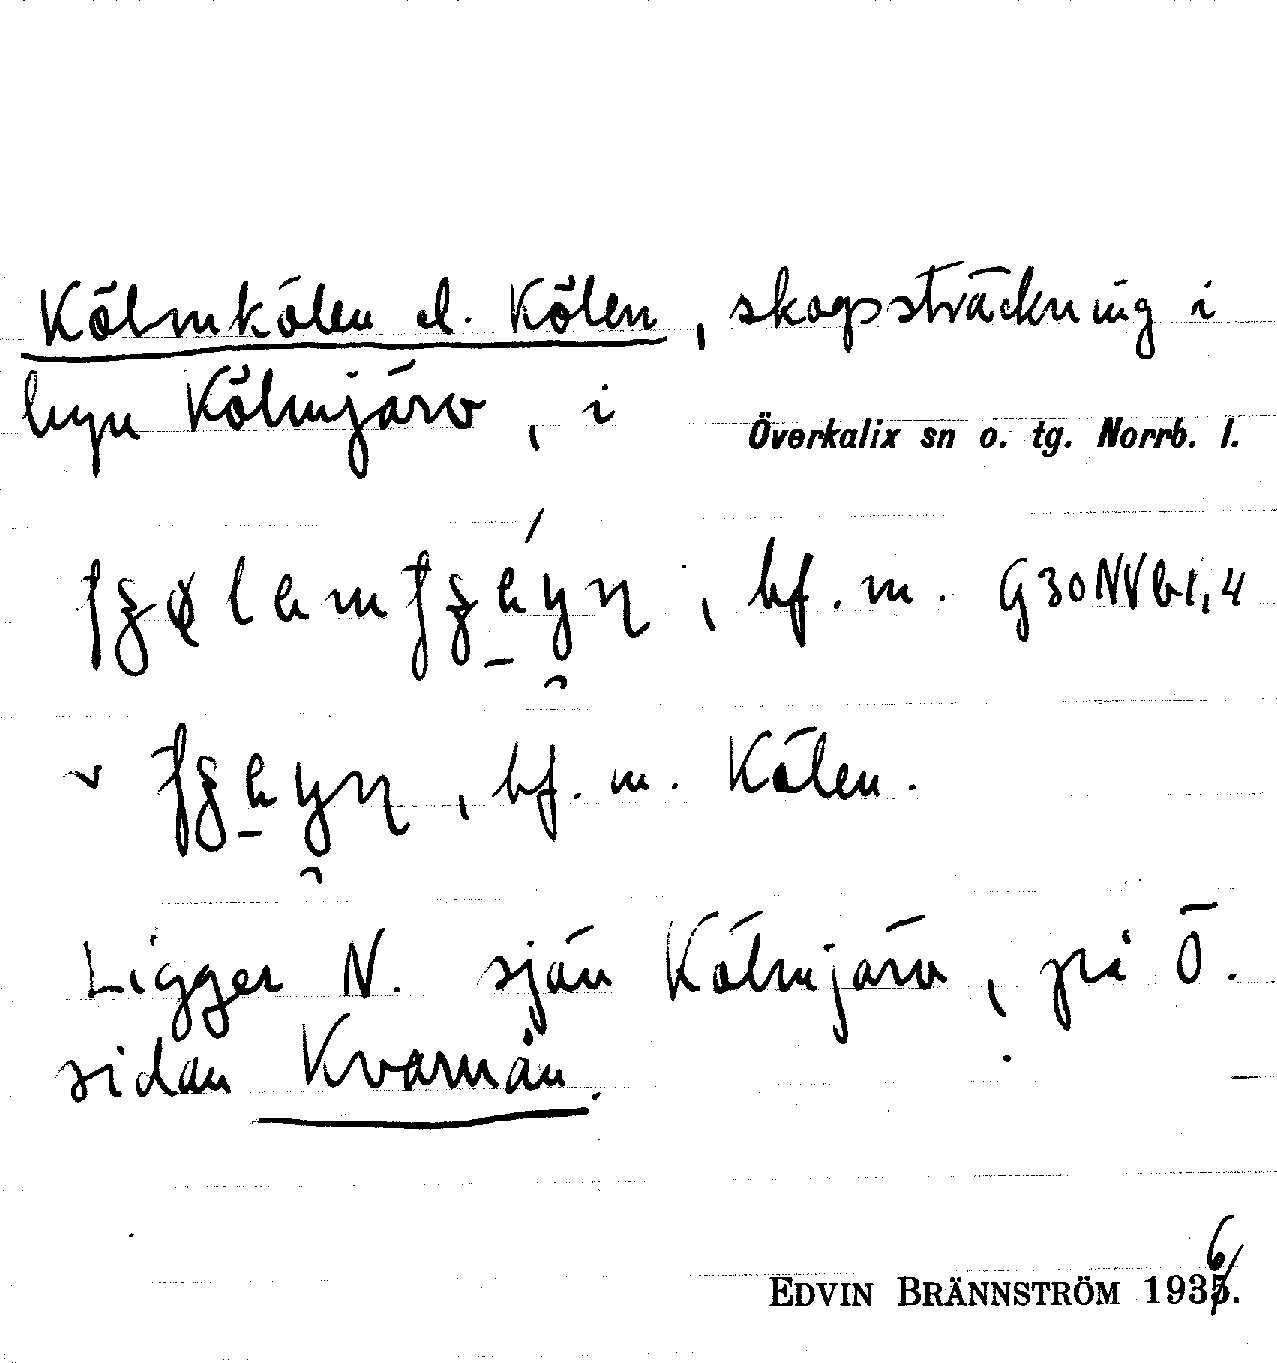 Kölmkölen el. Kölen, skogssträckning i
byn Kölmjärv, i Överkalix sn o. tg. Norrb. l.
, bf. m. G30NVb1,4
v , bf. m. Kölen.
Ligger N. sjön Kölmjärv, på Ö.
sidan Kvarnån.
EDVIN BRÄNNSTRÖM 1936.